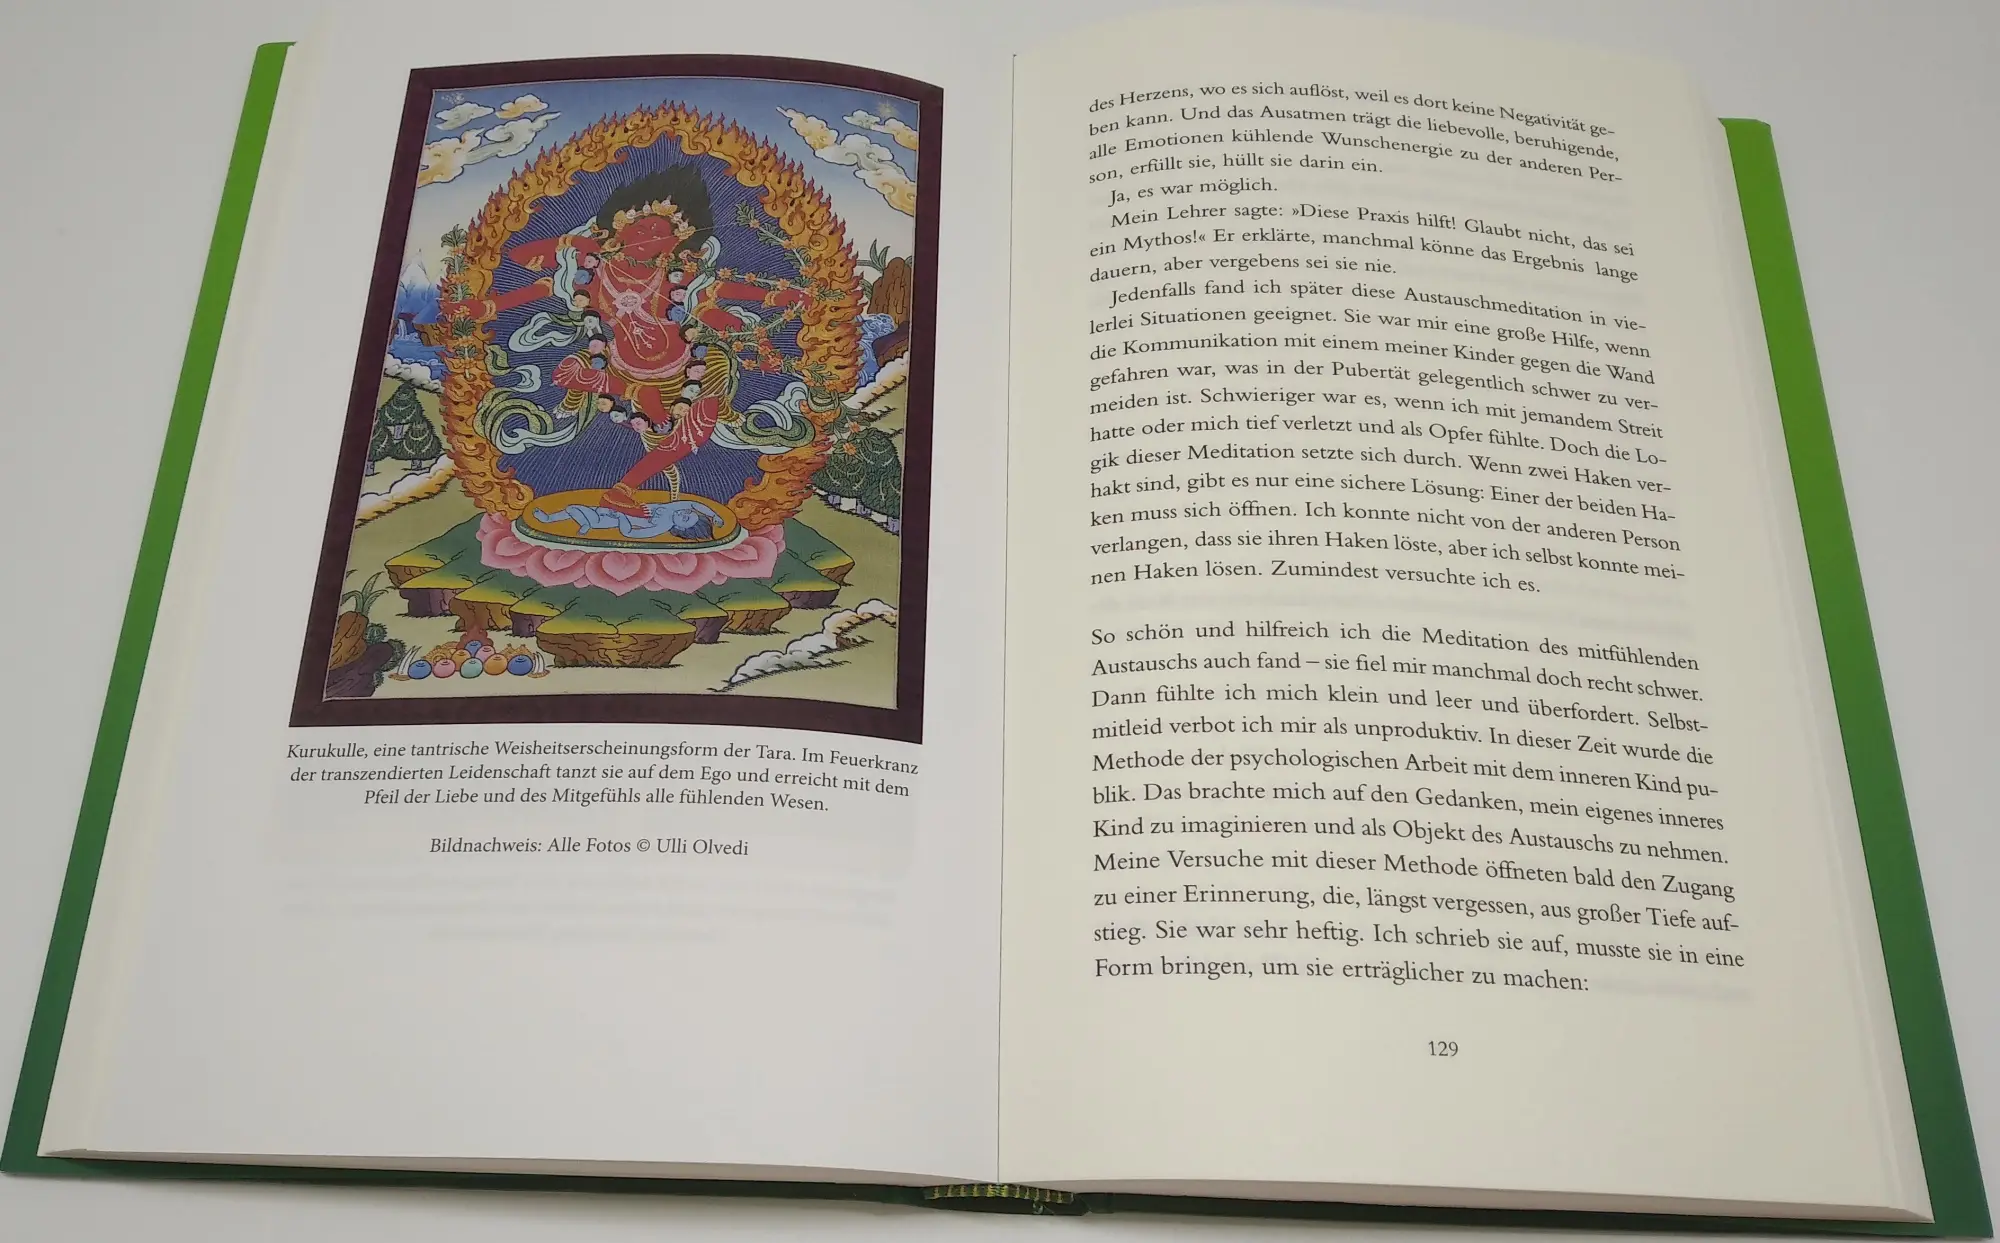 Kurukulle, eine tantrische Weisheitserscheinungsform der Tara. Im Feuerkranz
der transzendierten Leidenschaft tanzt sie auf dem Ego und erreicht mit dem
Pfeil der Liebe und des Mitgefühls alle fühlenden Wesen.
Bildnachweis: Alle Fotos © Ulli Olvedi
des Herzens, wo es sich auflöst, weil es dort keine Negativität ge-
ben kann. Und das Ausatmen trägt die liebevolle, beruhigende,
alle Emotionen kühlende Wunschenergie zu der anderen Per-
son, erfüllt sie, hüllt sie darin ein.
Ja, es war möglich.
Mein Lehrer sagte: »Diese Praxis hilft! Glaubt nicht, das sei
ein Mythos!« Er erklärte, manchmal könne das Ergebnis lange
dauern, aber vergebens sei sie nie.
Jedenfalls fand ich später diese Austauschmeditation in vie-
lerlei Situationen geeignet. Sie war mir eine große Hilfe, wenn
die Kommunikation mit einem meiner Kinder gegen die Wand
gefahren war, was in der Pubertät gelegentlich schwer zu ver-
meiden ist. Schwieriger war es, wenn ich mit jemandem Streit
hatte oder mich tief verletzt und als Opfer fühlte. Doch die Lo-
gik dieser Meditation setzte sich durch. Wenn zwei Haken ver-
hakt sind, gibt es nur eine sichere Lösung: Einer der beiden Ha-
ken muss sich öffnen. Ich konnte nicht von der anderen Person
verlangen, dass sie ihren Haken löste, aber ich selbst konnte mei-
nen Haken lösen. Zumindest versuchte ich es.
So schön und hilfreich ich die Meditation des mitfühlenden
Austauschs auch fand – sie fiel mir manchmal doch recht schwer.
Dann fühlte ich mich klein und leer und überfordert. Selbst-
mitleid verbot ich mir als unproduktiv. In dieser Zeit wurde die
Methode der psychologischen Arbeit mit dem inneren Kind pu-
blik. Das brachte mich auf den Gedanken, mein eigenes inneres
Kind zu imaginieren und als Objekt des Austauschs zu nehmen.
Meine Versuche mit dieser Methode öffneten bald den Zugang
zu einer Erinnerung, die, längst vergessen, aus großer Tiefe auf-
stieg. Sie war sehr heftig. Ich schrieb sie auf, musste sie in eine
Form bringen, um sie erträglicher zu machen:
129